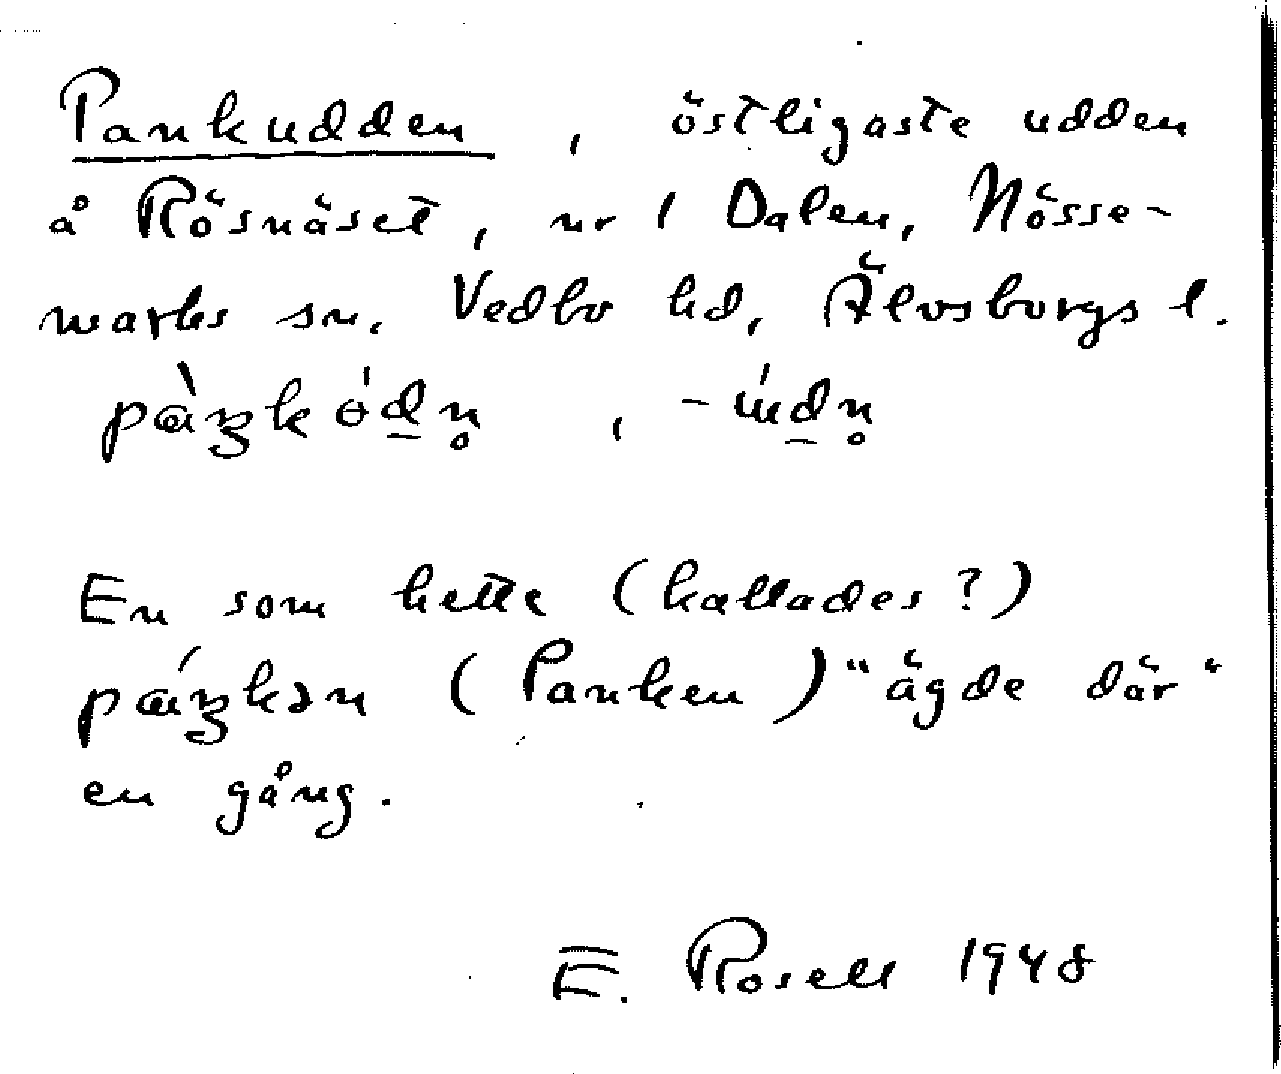 Pankudden, östligaste udden
å Rösnäset, nr 1 Dalen, Nösse-
marks sn. Vedbo hd, Älvsborgs l.
pàŋkɵ́dn̥, -ʉ́dn̥
En som hette (kallades?)
páŋkən (Panken) "ägde där"
en gång.
E. Rosell 1948